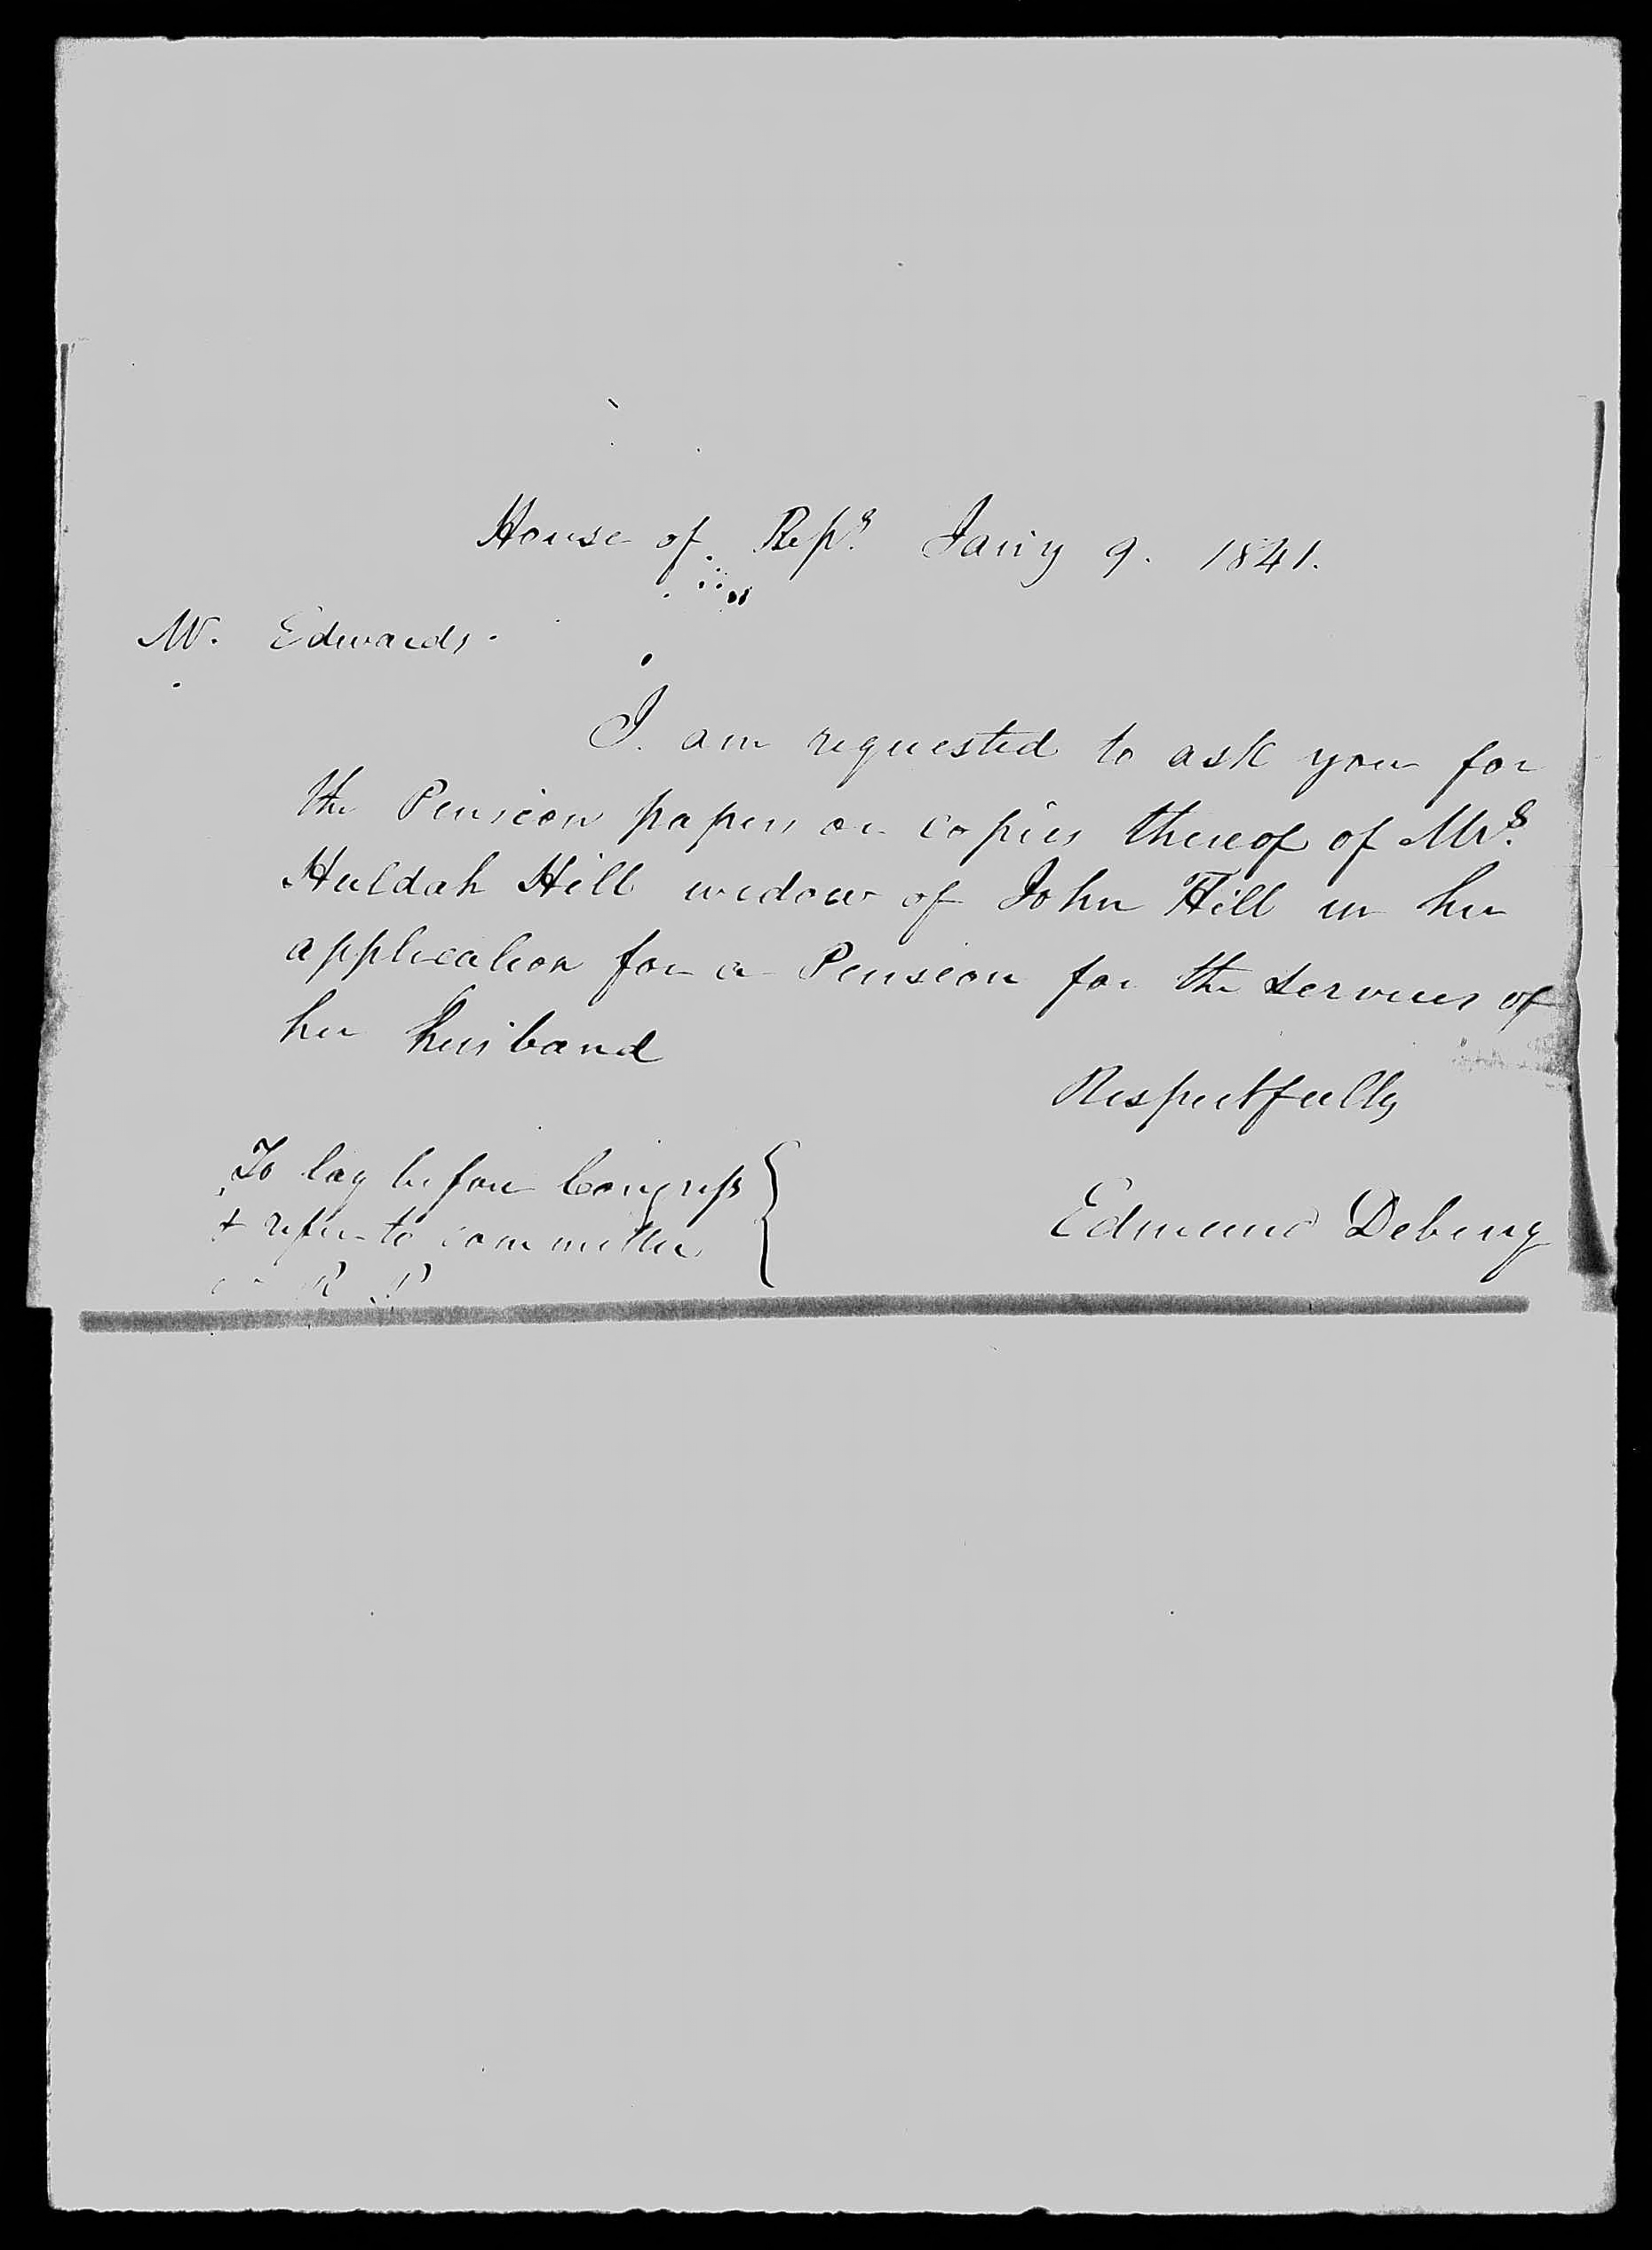 House of Reps. Jany 9. 1841.
Mr. Edwards.
I am requested to ask you for
the Pension papers or copies thereof of Mrs.
Huldah Hill widow of John Hill in her
application for a Pension for the services of
her husband
Respectfully
Edmund Debery
To lay before Congress
& refer to committee
R. P.